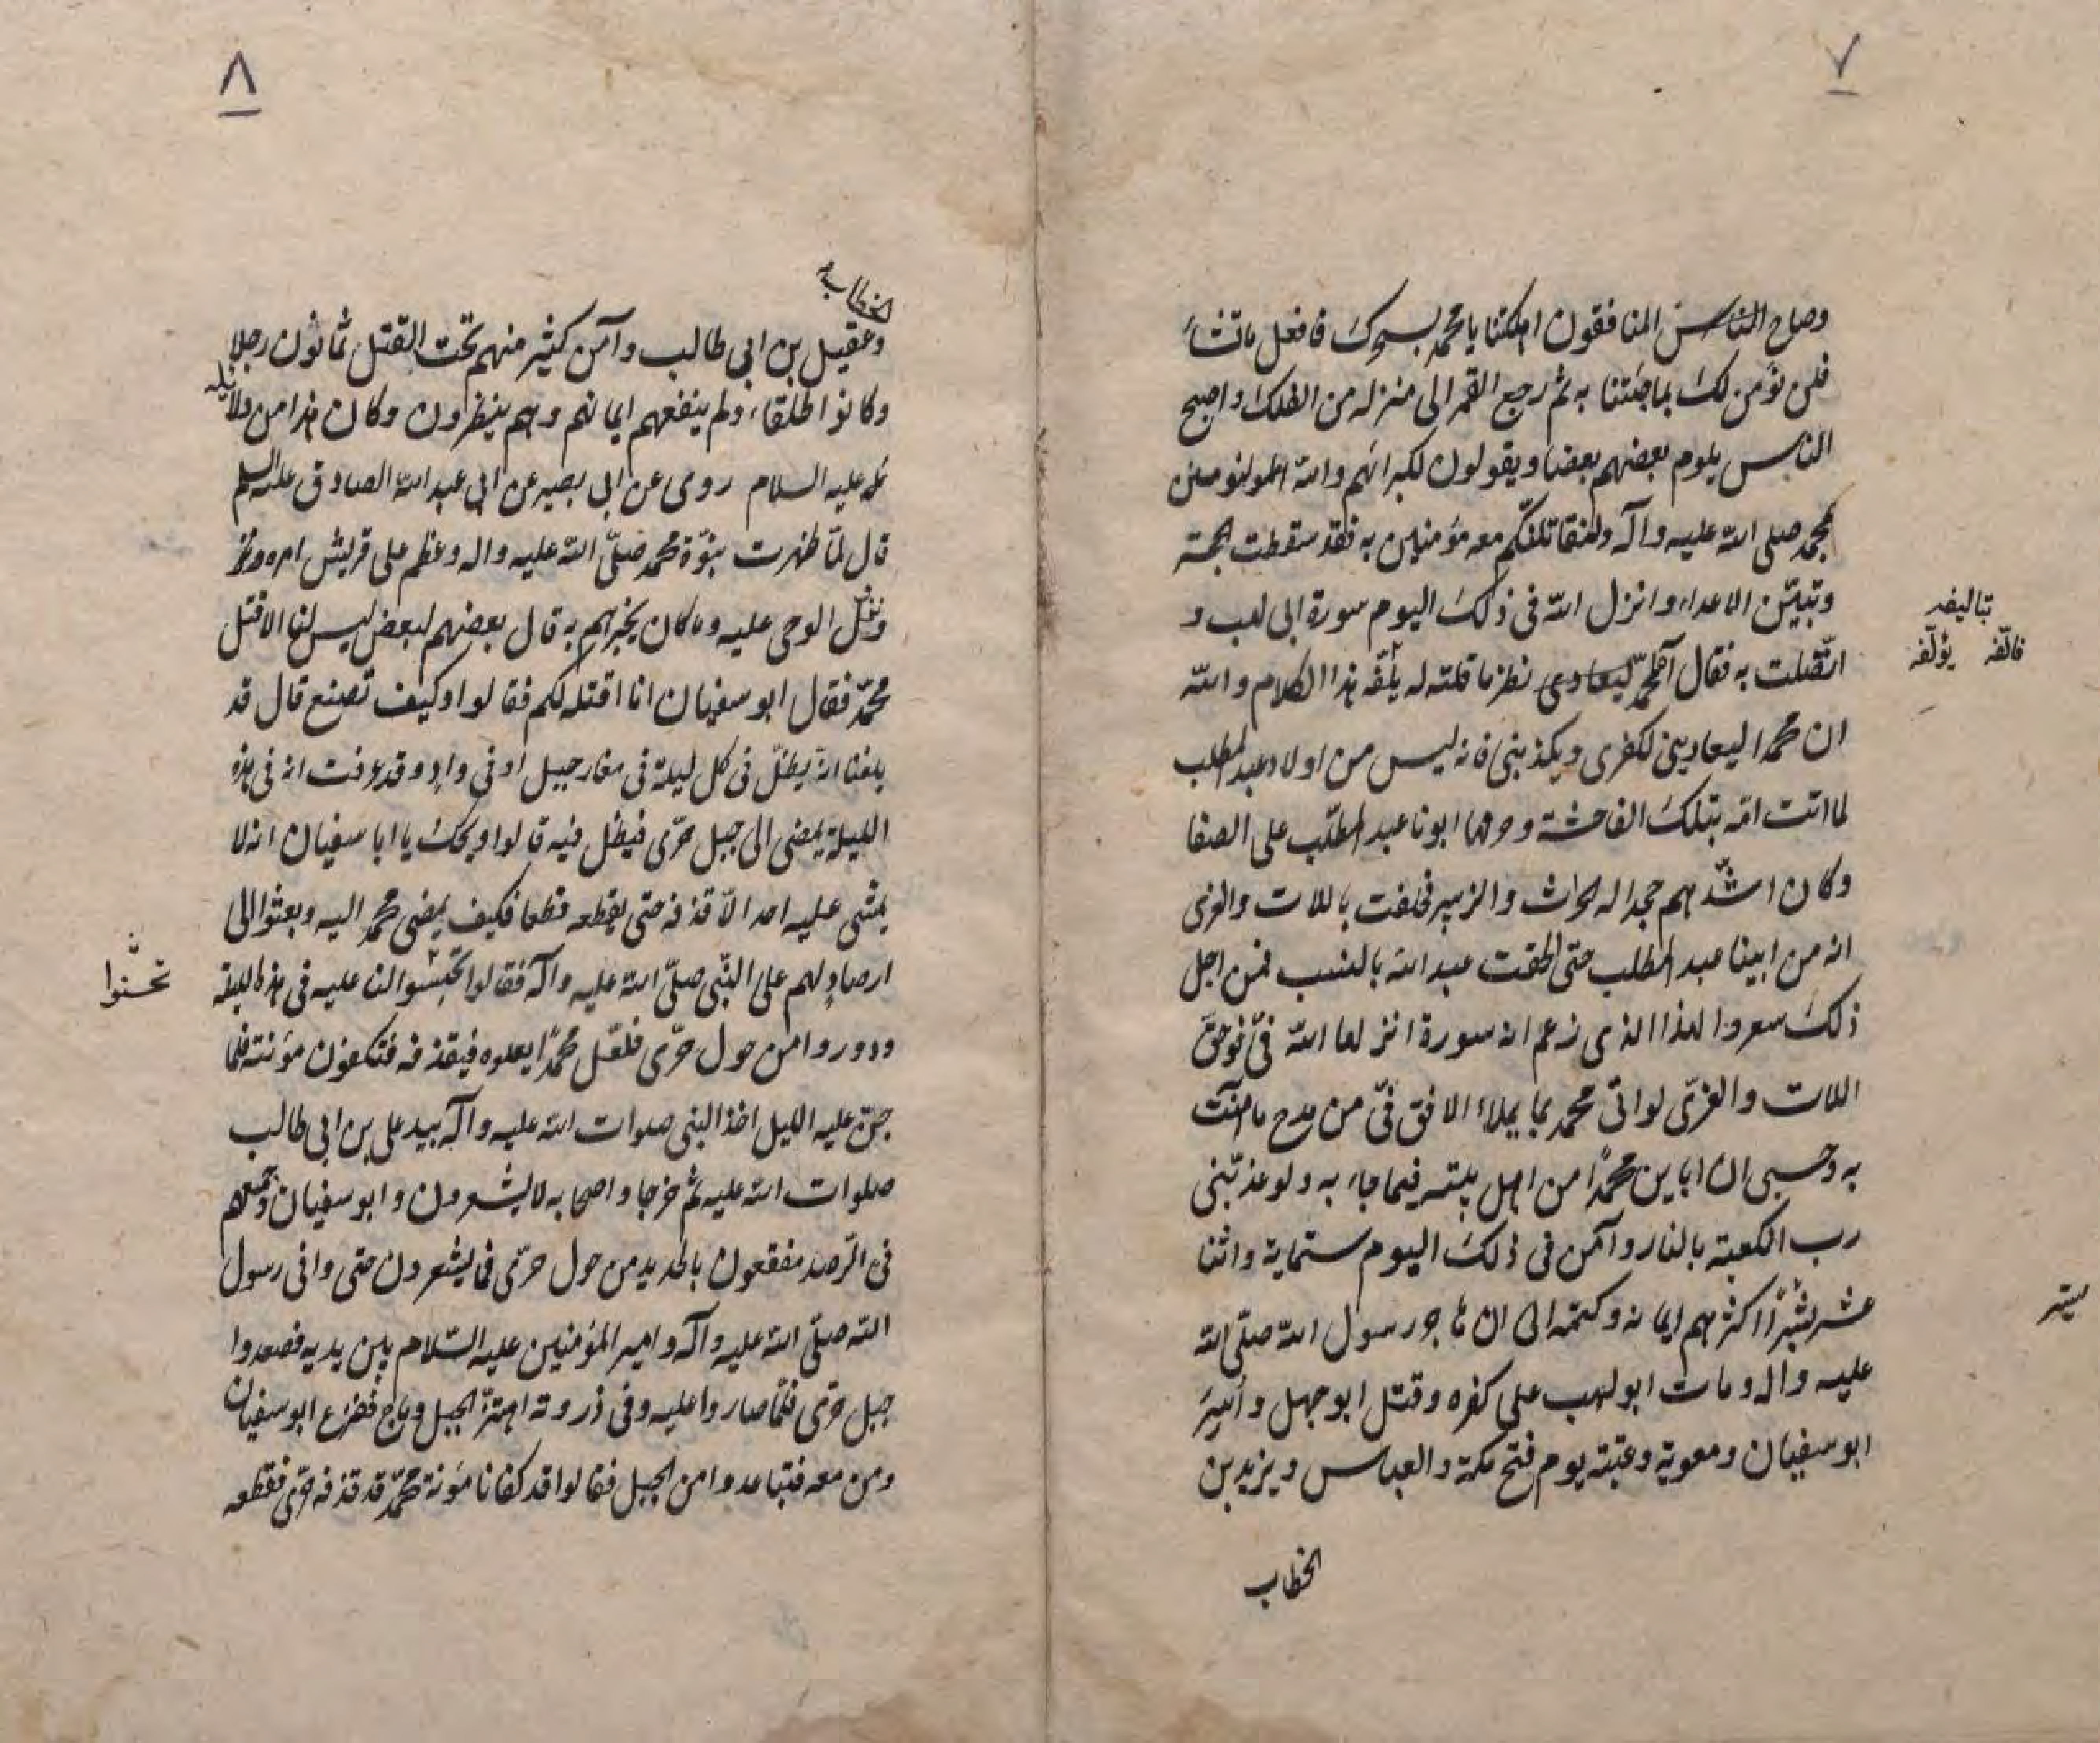 ٧
وصاح الناس المنافقون اهلكتنا يا محمد بسحرك فافعل ما تشاء
فلن نؤمن لك بما جئتنا به ثم رجع القمر الى منزله من الفلك واصبح
الناس يلوم بعضهم بعضا ويقولون لكبرائهم والله لنؤمنن
بمحمد صلى الله عليه وآله ولنقاتلنكم معه مؤمنين به فقد سقطت الحجة
وتبيّن الاعداء وانزل الله فى ذلك اليوم سورة ابى لهب و
اتّصلت به فقال محمد ليعادى نظر ما قلته له يلفّه هذا الكلام والله
ان محمدا ليعادينى لكفرى ويكذبنى فانه ليس من اولاد عبد المطلب
لما اتت امّه بتلك الفاحشة وحرمها ابونا عبد المطلب على الصفا
وكان اشدّهم جحدا له الحراث والزبير فحلفت باللات والعزى
انه من ابينا عبد المطلب حتى الحقت عبد الله بالنسب فمن اجل
ذلك سعروا لهذا الذى زعم انه سورة انزلها الله فىّ فوحق
اللات والعزّى لو اتى محمد بما يملاء الافق فىّ من مدح ما آمنت
به وحسبى ان اباين محمدًا من اهل بيته فيما جاء به ولو عذبّنى
رب الكعبة بالنار وآمن فى ذلك اليوم ستماية واثنا
عشر اكثرهم ايمانه وكتمه الى ان هاجر رسول الله صلّى الله
عليه واله ومات ابو لهب على كفره وقتل ابو جهل وأسِرَ
ابو سفيان ومعوية وعتبة يوم فتح مكة والعباس ويزيد بن
الخطاب
بتاليفه
فالّفه يؤلّفه
يستر
٨
الخطاب
وعقيل بن ابى طالب وآمن كثير منهم تحت القتل ثمانون رجلا
وكانوا طلقاء ولم ينفعهم ايمانهم وهم ينظرون وكان هذا من دلائله
عليه السلام روى عن ابى بصير عن ابى عبد الله الصادق عليه السلم
قال لمّا ظهرت نبوّة محمد صلّى الله عليه واله وعظم على قريش امره
ونزل الوحى عليه وما كان يخبرهم به قال بعضهم لبعض ليس لنا الا قتل
محمّد فقال ابو سفيان انا اقتله لكم فقالوا وكيف تصنع قال قد
بلغنا انه يظلّ فى كل ليلة فى مغار جبل او فى واد وقد عرفت انه فى هذه
الليلة يمضى الى جبل حرّى فيظل فيه قالوا ويحك يا ابا سفيان انه لا
يمشى عليه احد الّا قذفه حتى يقطعه قطعا فكيف يمضى محمد اليه وبعثوا الى
ارصاد لهم على النبّى صلّى الله عليه وآله فقالوا تجسّسوا لنا عليه فى هذه الليلة
ودوروا من حول حرّى فلعّل محمّدًا يعلوه فيقذفه فتكفون مؤنته فلما
جنّ عليه الليل اخذ النبى صلوات الله عليه وآله بيد على بن ابى طالب
صلوات الله عليه ثم خرجا واصحابه لا يشعرون وابو سفيان وجميعهم
فى الرّصد مقنعون بالحديد من حول حرّى فما يشعرون حتى وافى رسول
الله صلّى الله عليه وآله وامير المؤمنين عليه السّلام بين يديه فصعدوا
جبل حرّى فلمّا صاروا عليه وفى ذروته اهتزّ الجبل وماج ففزع ابو سفيان
ومن معه فتباعدوا من الجبل فقالوا قد كفانا مؤنة محمّد قد قذفه حرّى فقطعه
تحسّنوا